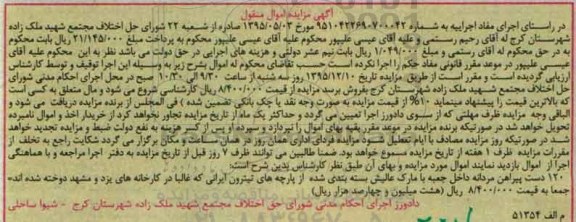 آگهی مزایده اموال منقول
در راستای اجرای مفاد اجراییه به شماره ۹۵۱۰۴۲۲۶۹۰۷۰۰۰۴۲ مورخ ۱۳۹۵/۰۵/۰۳ صادره از شعبه ۲۲ شورای حل اختلاف مجتمع شهید ملک زاده
شهرستان کرج له آقای رحیم رستمی و علیه آقای عیسی علیپور محکوم علیه آقای عیسی علیپور محکوم به پرداخت مبلغ ۲۱/۱۴۵/۰۰۰ ریال بابت محکوم
به در حق محکوم له آقای رستمی و مبلغ ۱/۰۴۹/۰۰۰ ریال بابت نیم عشر دولتی و هزینه های اجرایی در حق دولت می باشد نظر به این محکوم علیه آقای
عیسی علیپور در موعد مقرر قانونی مفاد حکم را اجرا نکرده است حسب تقاضای محکوم له اموال بشرح زیر به وسیله این اجرا توقیف و توسط کارشناس
ارزیابی گردیده است و مقرر است از طریق مزایده تاریخ ۱۳۹۵/۱۲/۱۰ روز سه شنبه از ساعت ۹/۳۰ الی ۱۰/۳۰ صبح در محل اجرای احکام مدنی شورای
حل اختلاف مجتمع شهید ملک زاده شهرستان کرج بفروش برسد مزایده از قیمت ۸/۴۰۰/۰۰۰ ریال کارشناسی شروع می شود و مال متعلق به کسی است
که بالاترین قیمت را پیشنهاد مینماید ۱۰% از قیمت مزایده به صورت وجه نقد یا چک بانکی تضمین شده) فی المجلس از برنده مزایده دریافت می شود و
الباقی وجه مزایده ظرف مهلتی که از سوی دادورز اجرا تعیین می گردد و حداکثر یک ماه از تاریخ مزایده تجاوز نخواهد کرد از خریدار اخذ و اموال نامبرده
تحویل خواهد شد در صورتیکه برنده مزایده در موعد مقرر بقیه بهای اموال را نپردازد و سپرده او پس از کسر هزینه به نفع دولت ضبط و مزایده تجدید خواهد
شد در صورتیکه روز مزایده مصادف با ایام تعطیل شود مزایده فردای اداری همان روز در همان ساعت و مکان برگزار می گردد شکایت راجع به تخلف از
مقررات مزایده ظرف ۱ هفته از تاریخ مزایده مسموع خواهد بود. ضمنا طالبین می توانند ظرف ۷ روز قبل از تاریخ مزایده به دفتر اجرا مراجعه و با هماهنگی
اجرا از اموال بازدید نمایند اموال مورد مزایده و بهای آن طبق نظر کارشناس بدین شرح است:
۱۲۰ دست پیراهن مردانه داخل جعبه با مارک عالیشی بسته بندی شده از پارچه های تیترون ایرانی که غالبا در کارخانه های یزد و مشهد دوخته شده اند-
جمعا به قیمت ۸/۴۰۰/۰۰۰ ریال (هشت میلیون و چهارصد هزار ریال)
دادورز اجرای احکام مدنی شورای حل اختلاف مجتمع شهید ملک زاده شهرستان کرج - شیوا ساحلی
م الف ۵۱۳۵۴